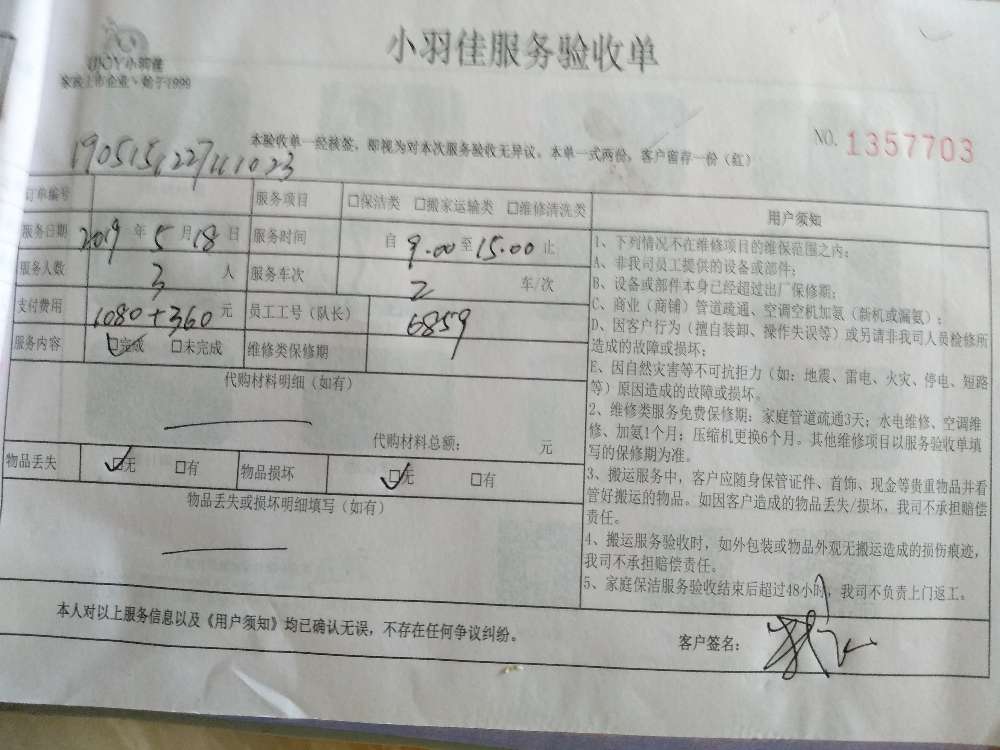 小羽佳服务验收单
JOY小羽佳
家政上市企业·始于1999
本验收单一经核签，即视为对本次服务验收无异议。本单一式两份，客户留存一份（红）
NO. 1357703
订单编号
服务项目 □保洁类 □搬家运输类 □维修清洗类
服务日期 2019年5月18日 服务时间 自9.00至15.00止
服务人数 3人 服务车次 2车/次
支付费用 1080+360元 员工工号（队长） 6859
服务内容 □完成 □未完成 维修类保修期
代购材料明细（如有）
代购材料总额： 元
物品丢失 □无 □有 物品损坏 □无 □有
物品丢失或损坏明细填写（如有）
用户须知
1、下列情况不在维修项目的维保范围之内：
A、非我司员工提供的设备或部件；
B、设备或部件本身已经超过出厂保修期；
C、商业（商铺）管道疏通、空调空机加氨（新机或漏氨）；
D、因客户行为（擅自装卸、操作失误等）或另请非我司人员检修所
造成的故障或损坏；
E、因自然灾害等不可抗拒力（如：地震、雷电、火灾、停电、短路
等）原因造成的故障或损坏。
2、维修类服务免费保修期：家庭管道疏通3天；水电维修、空调维
修、加氨1个月；压缩机更换6个月。其他维修项目以服务验收单填
写的保修期为准。
3、搬运服务中，客户应随身保管证件、首饰、现金等贵重物品并看
管好搬运的物品。如因客户造成的物品丢失/损坏，我司不承担赔偿
责任。
4、搬运服务验收时，如外包装或物品外观无搬运造成的损伤痕迹，
我司不承担赔偿责任。
5、家庭保洁服务验收结束后超过48小时，我司不负责上门返工。
本人对以上服务信息以及《用户须知》均已确认无误，不存在任何争议纠纷。
客户签名：